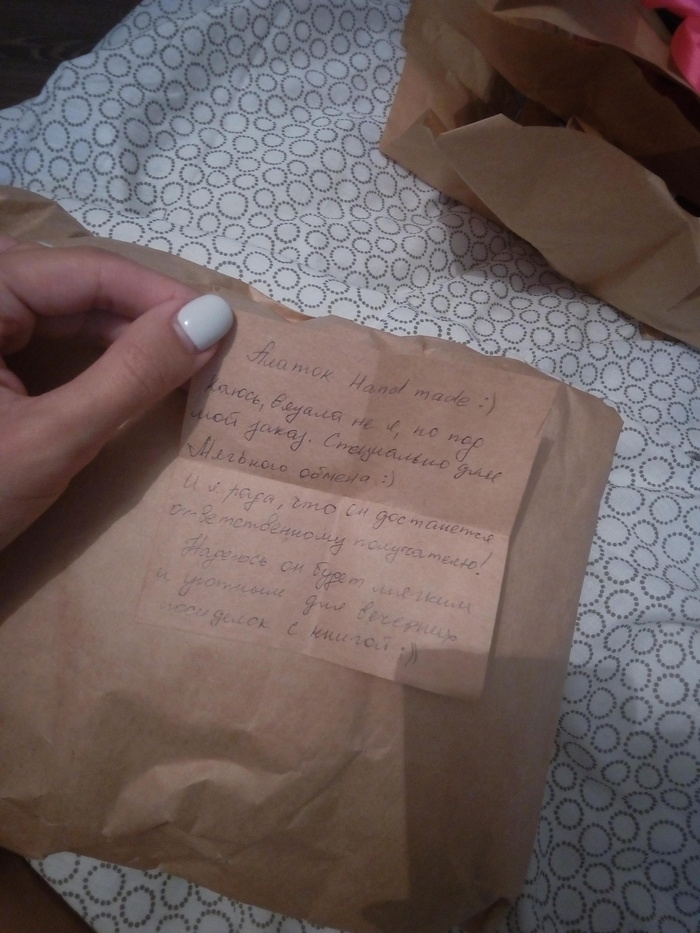 Платок Hand made :)
каюсь, вязала не я, но под
мой заказ. Специально для
Мягкого обмена :)
И я рада, что он достанется
ответственному получателю!
Надеюсь он будет мягким
и уютным для вечерних
посиделок с книгой :))